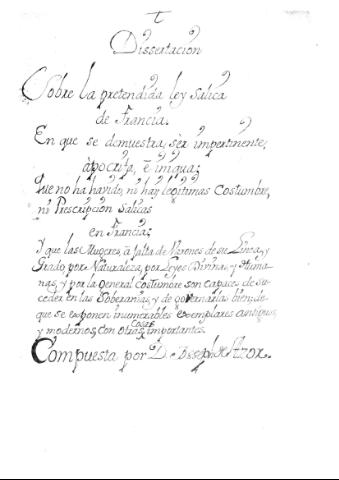 Dissertacion
Sobre la pretendida ley Salica
de Francia.
En que se demuestra, sèr impertinente,
àpocrifa, è iniqua;
Que no ha havido, ni hay legitimas Costumbre,
ni Prescripcion Salicas
en Francia;
Y que las Mugeres, a falta de Varones de su Linea, y
Grado, por Naturaleza, por Leyes Divinas, y Huma-
nas, y por la general Costumbre son capaces de Su-
ceder en las Soberanias, y de governarlas bien; de
que se exponen inumerables exemplares antiguos,
y modernos, con otras cosas importantes.
Compuesta por D. Joseph Azor.